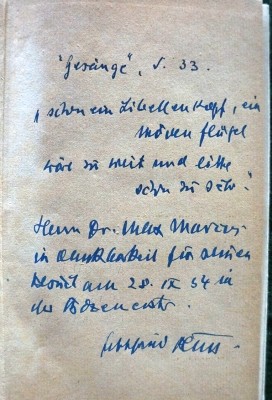 "Gesänge", S. 33.
"schon ein Libellenkopf, ein
Möven flügel
wär zu weit und litte
schon zu sehr."
Herrn Dr. Max Marcus
in Dankbarkeit für seinen
Besuch am 28. IX 54 in
der Bozenerstr.
Gottfried Benn.